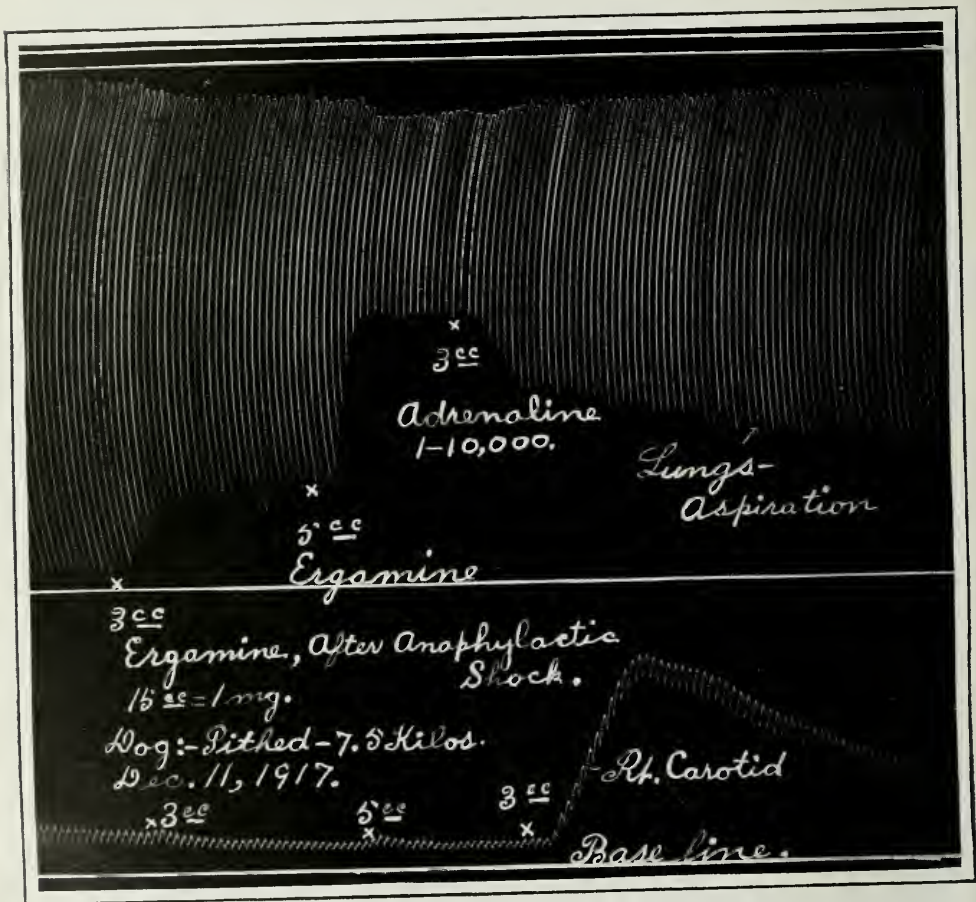 3 cc
Adrenaline
1-10,000.
Lungs-
Aspiration
5 cc
Ergamine
3 cc
Ergamine, After Anaphylactic
Shock.
15 cc = 1 mg.
Dog:- Pithed - 7.5 Kilos.
Dec. 11, 1917.
Rt. Carotid
3 cc
5 cc
3 cc
Base line.